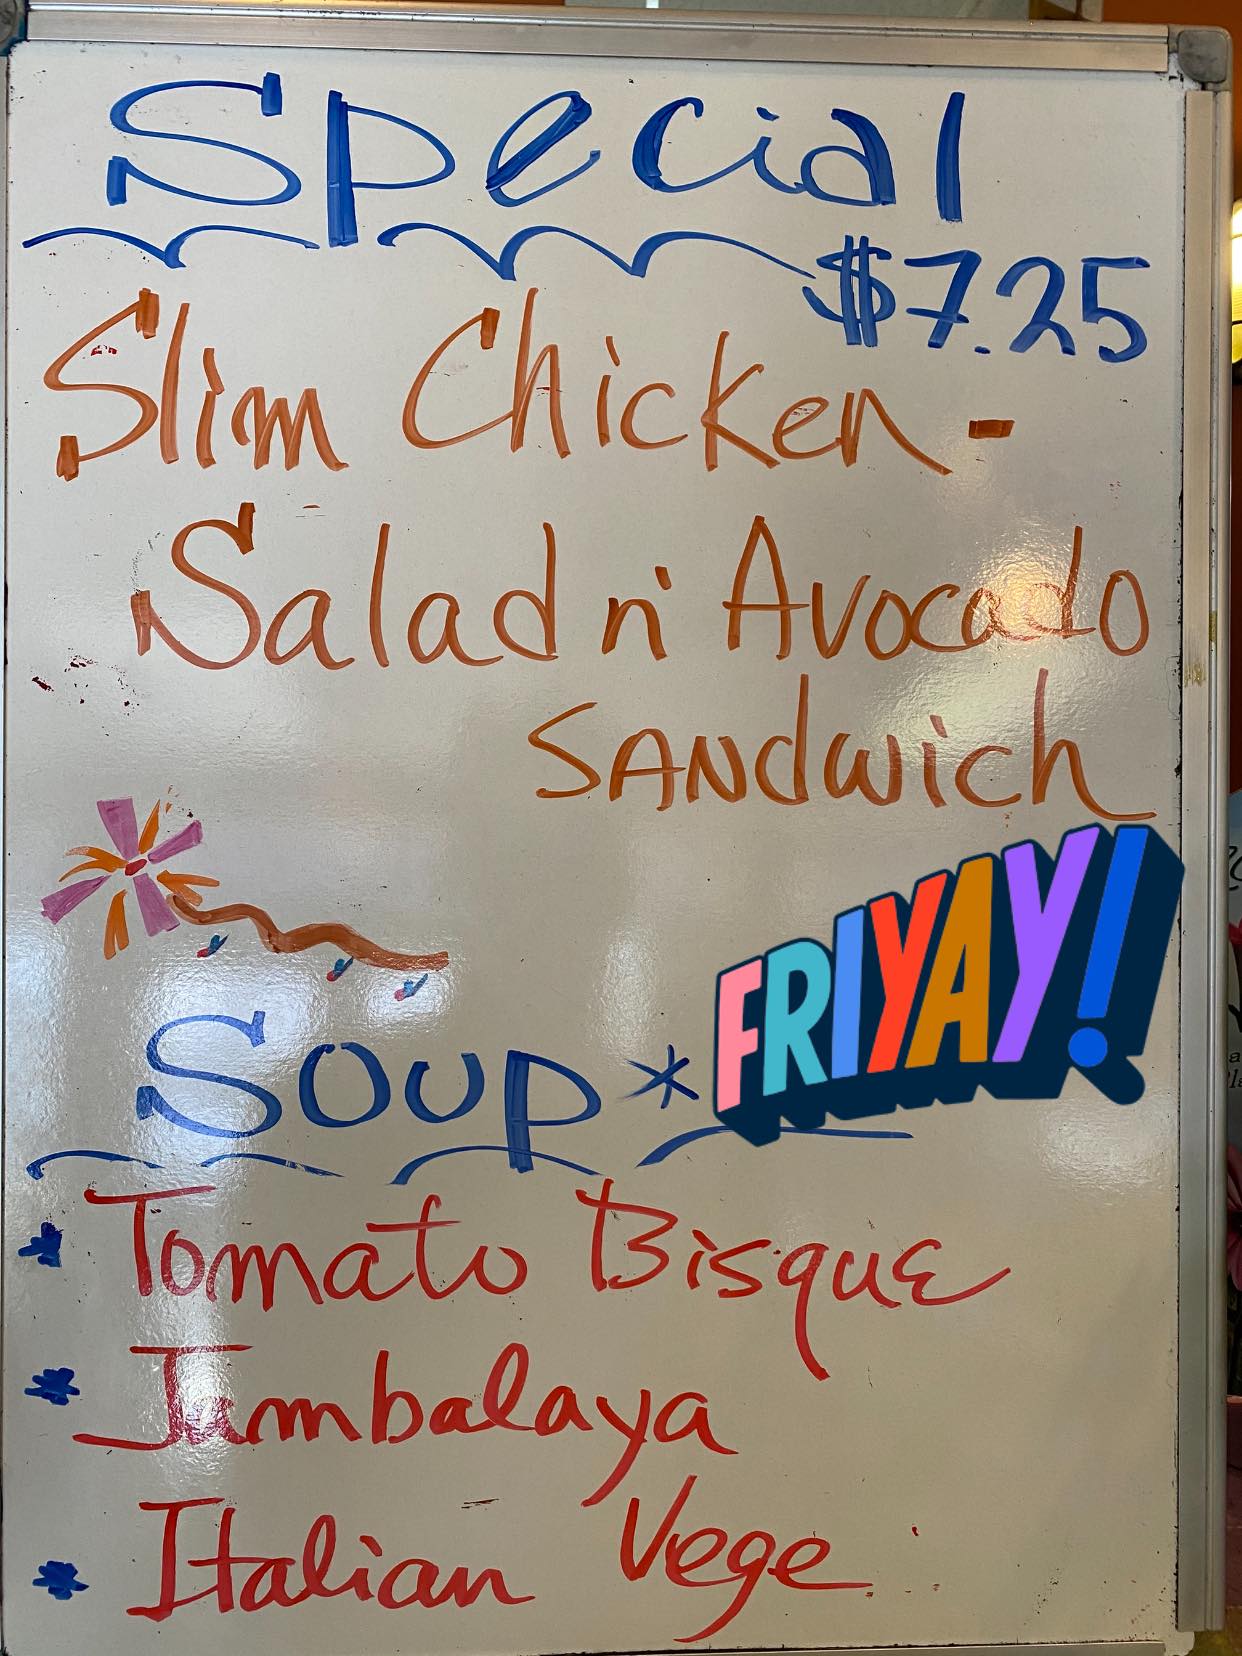 Special
$7.25
Slim Chicken -
Salad n' Avocado
SANdwich
FRIYAY!
Soup*
* Tomato Bisque
* Jambalaya
* Italian Vege